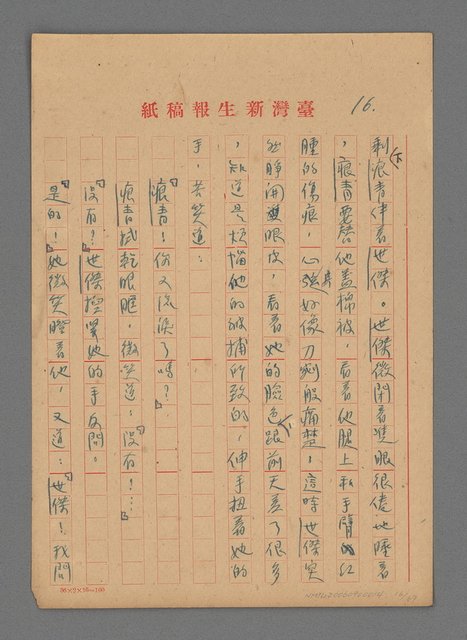 臺灣新生報稿紙
16.
剩痕青伴着世傑。世傑微閉着雙眼很倦地睡着
，痕青要替他盖棉被，看着他腿上和手臂的红
腫的傷痕，心裏好像刀割般痛楚，這時世傑突
然睜開雙眼皮，看着她的臉色跟前天差了很多
，知道是煩惱他的被捕所致的，伸手扭着她的
手，苦笑道：
「痕青！你又流淚了嗎？」
痕青拭乾眼眶，微笑道：「没有！…」
「沒有？」世傑握緊她的手反問。
「是的！」她微笑瞪着他，又道：「世傑！我問
36×2×50=100
NMTL20060900014 16/67